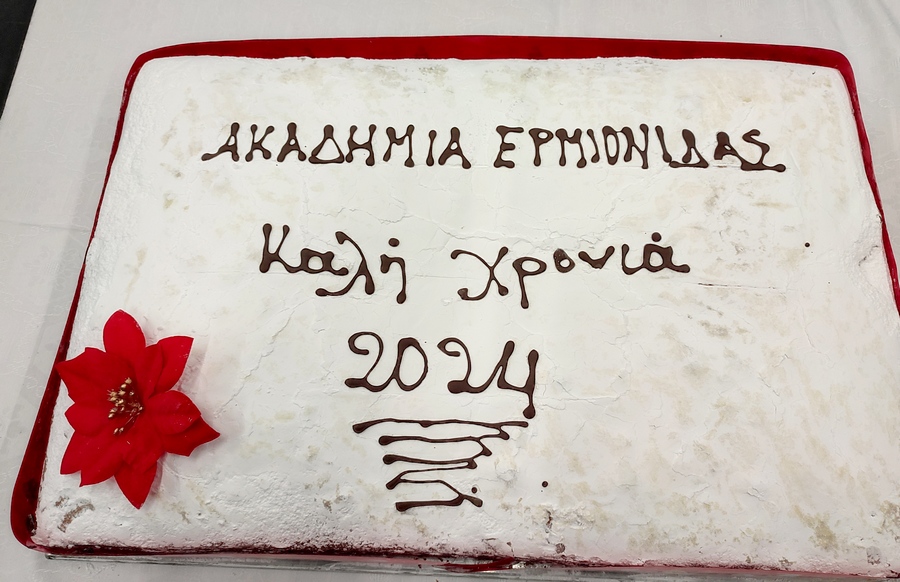 ΑΚΑΔΗΜΙΑ ΕΡΜΙΟΝΙΔΑΣ
Καλή χρονιά
2024